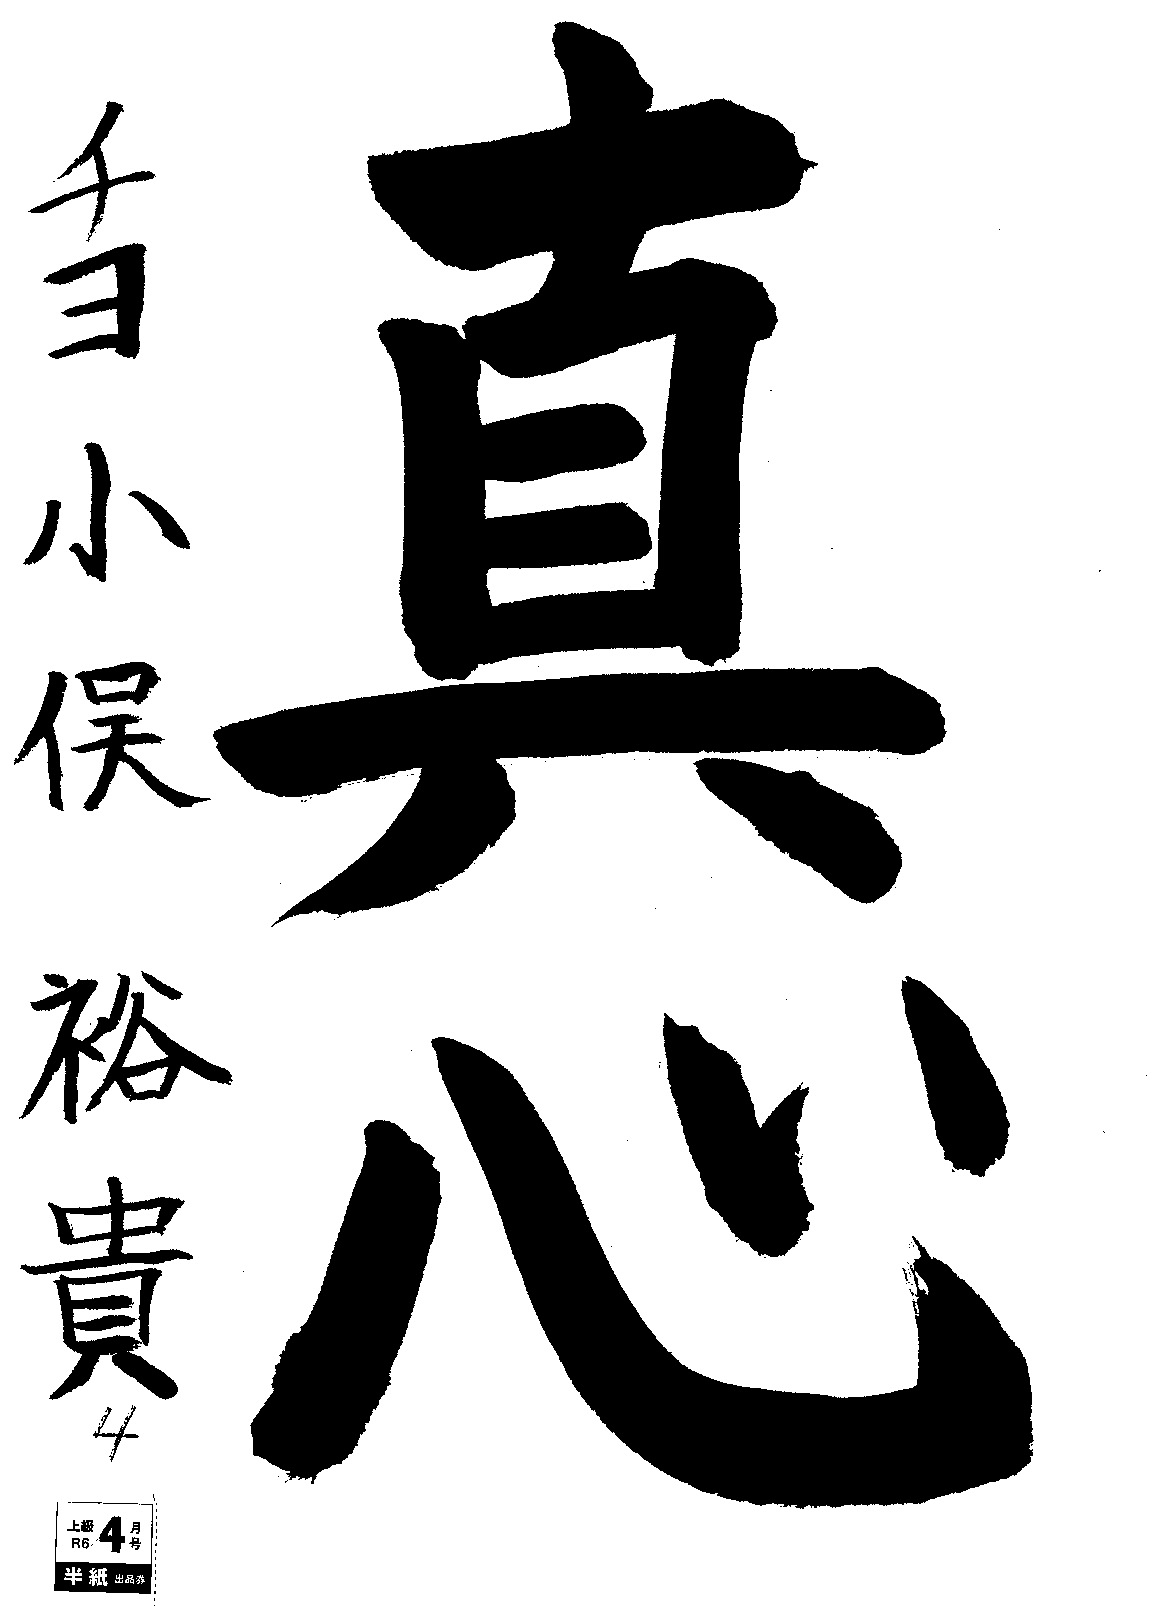 真心
チヨ 小俣 裕貴
4
上級 R6 4月号
半紙 出品券